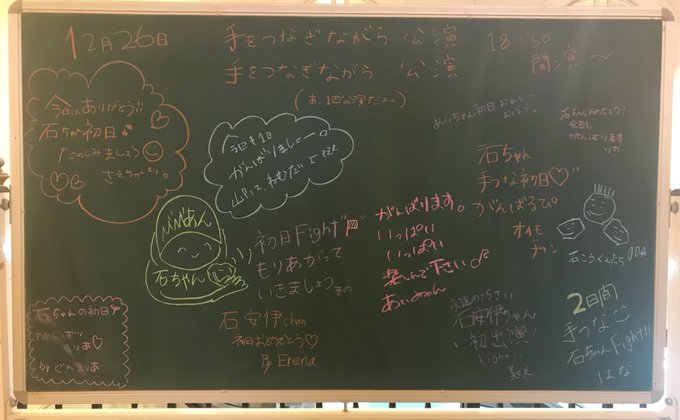 12月26日
手をつなぎながら 公演
手をつなぎながら 公演
18:30
開演〜
今日はありがとう!!
石ちゃん初日
たのしみましょう
さえちゃん
今日も1日
がんばりましょー。
あいちゃん初日
石ちゃんおめでとう!
今日も
がんばります
りの
石ちゃん
手つな初日♡
がんばるぴ
オイモ
チャン
石ちゃん
初日Fight
もりあがって
いきましょう
がんばります。
いっぱい
いっぱい
楽しんで下さい♪
石こうくんたち
石ちゃんの初日
がんばり
石安伊chan
初日おめでとう♡
By Erena
石安伊ちゃん
初出演
fight
2日間
手つな
石ちゃんFight!!
はな